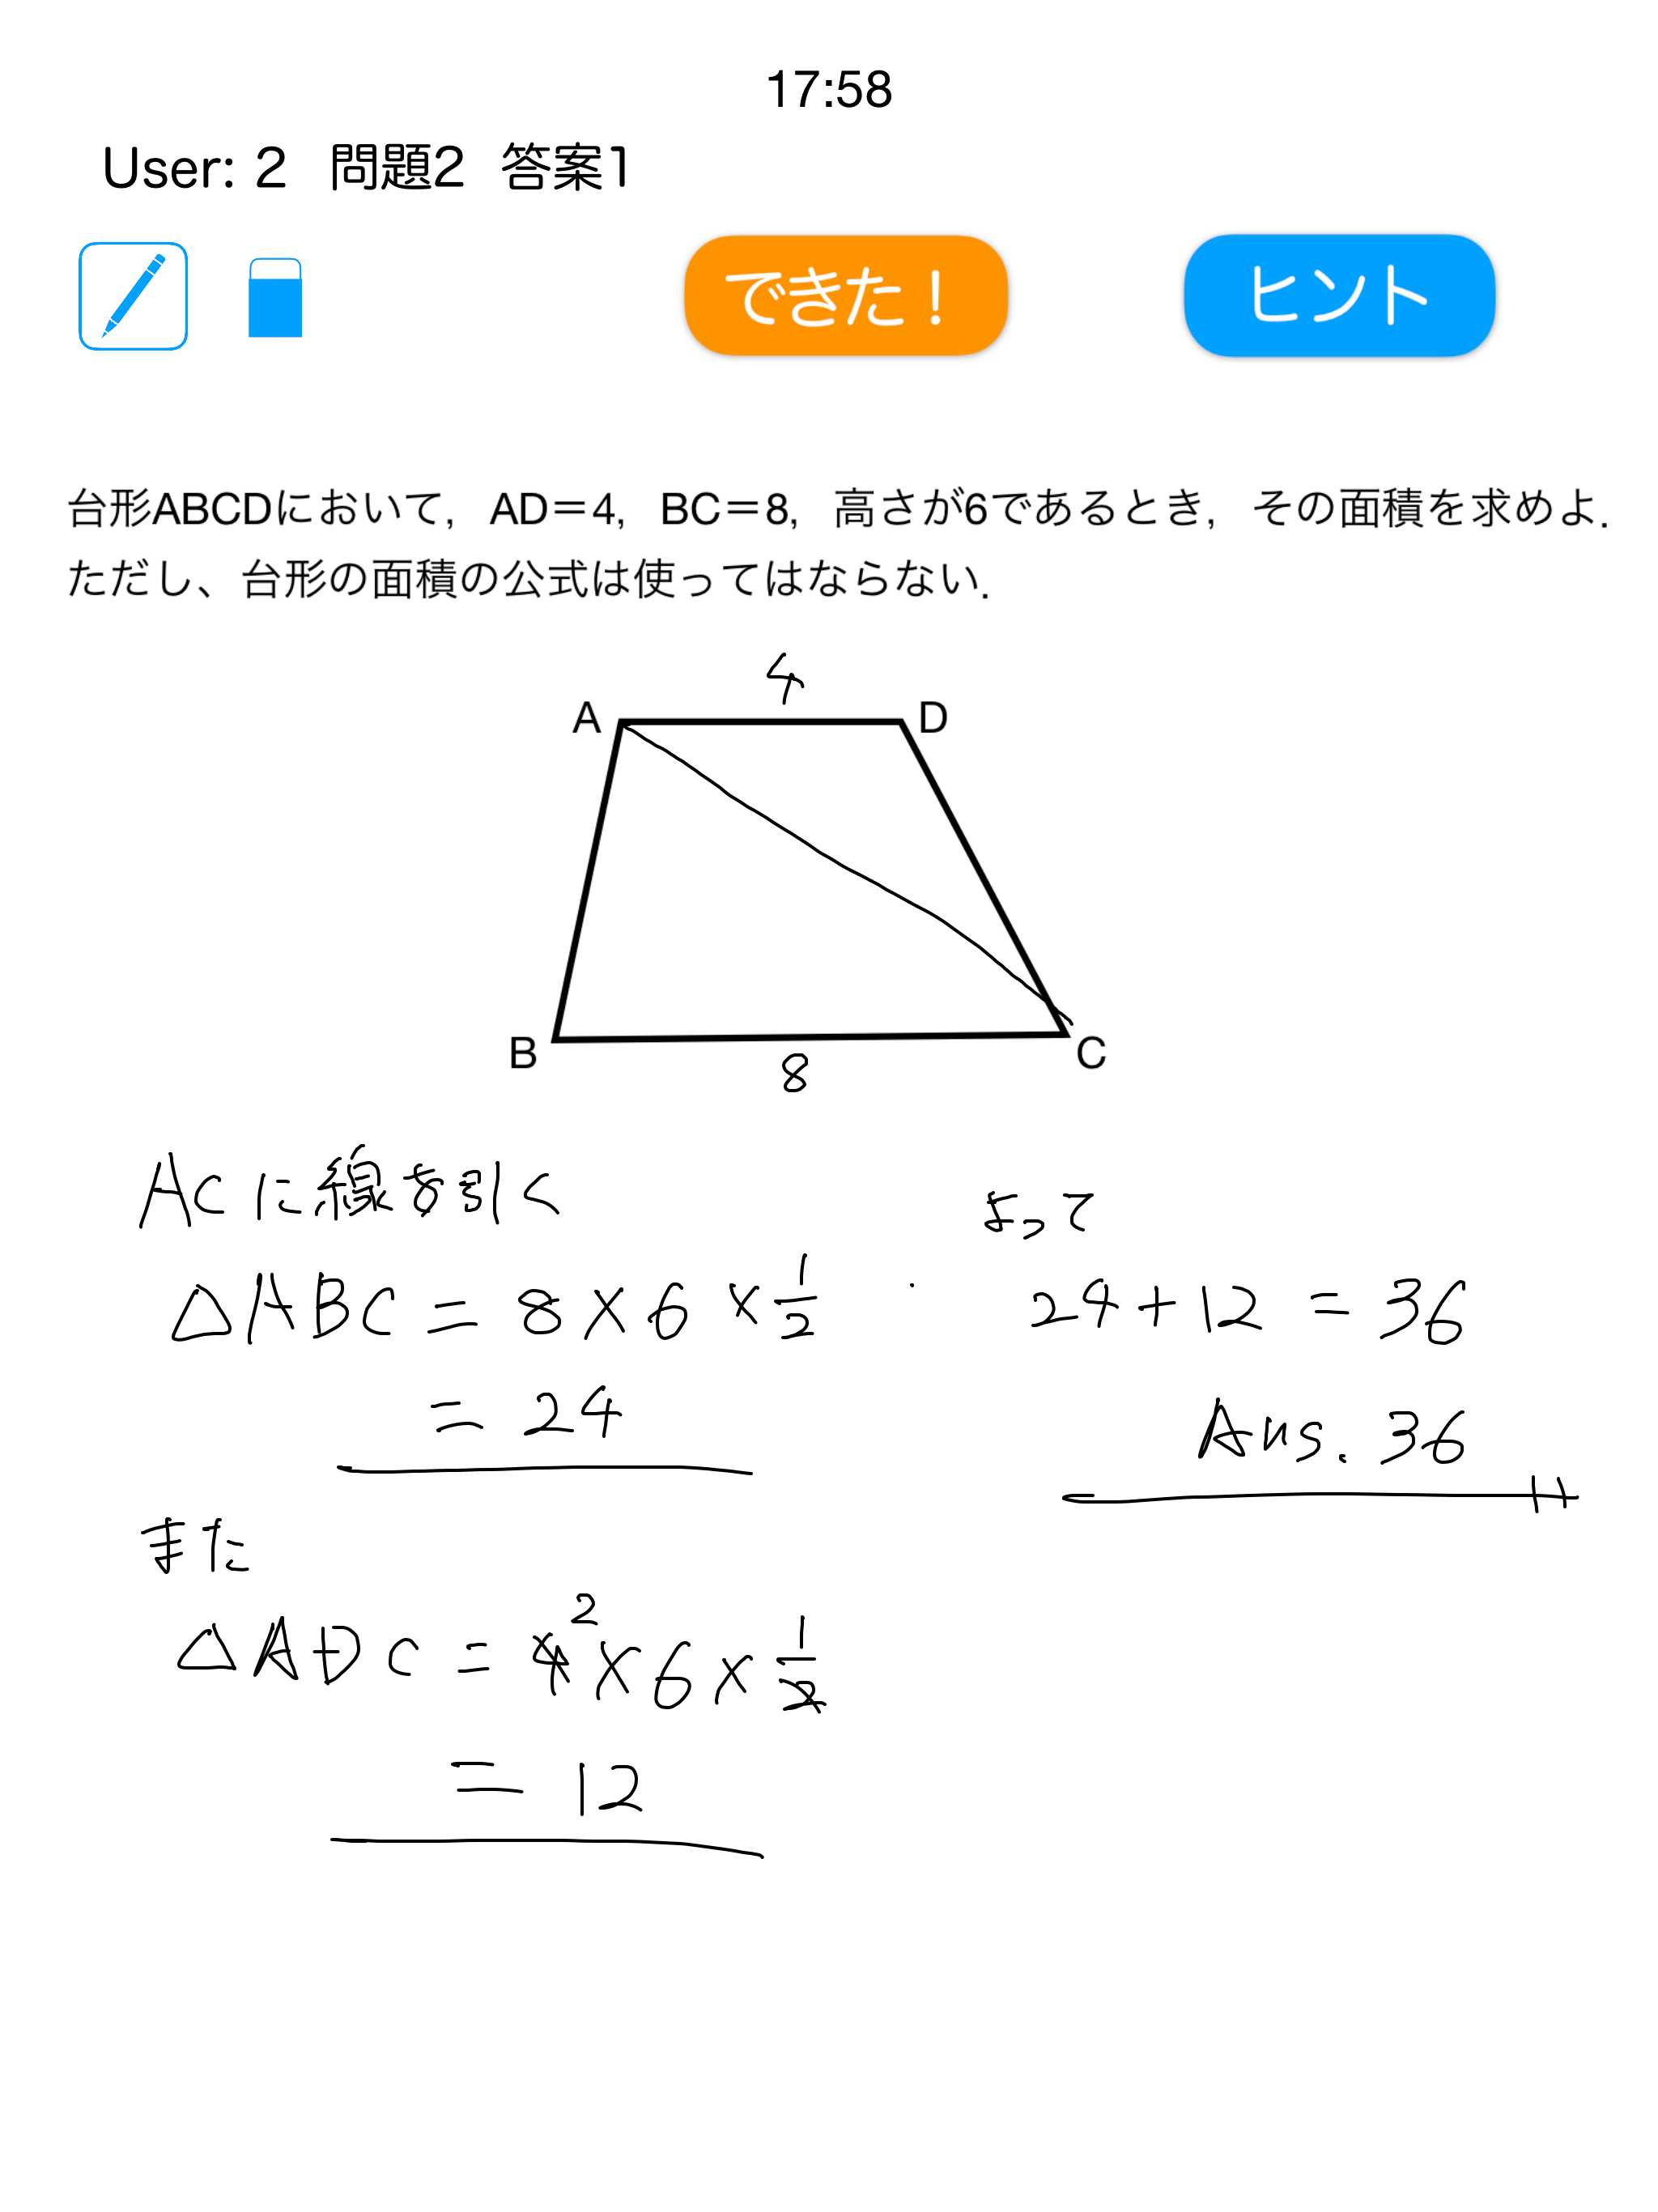 17:58
User: 2 問題2 答案1
できた！ ヒント
台形ABCDにおいて，AD＝4，BC＝8，高さが6であるとき，その面積を求めよ．
ただし、台形の面積の公式は使ってはならない．
4
A D
B C
8
ACに線を引く
△ABC = 8 × 6 × 1/2
= 24
また
△ADC = 4 2 × 6 × 1/2
= 12
よって
24 + 12 = 36
Ans. 36